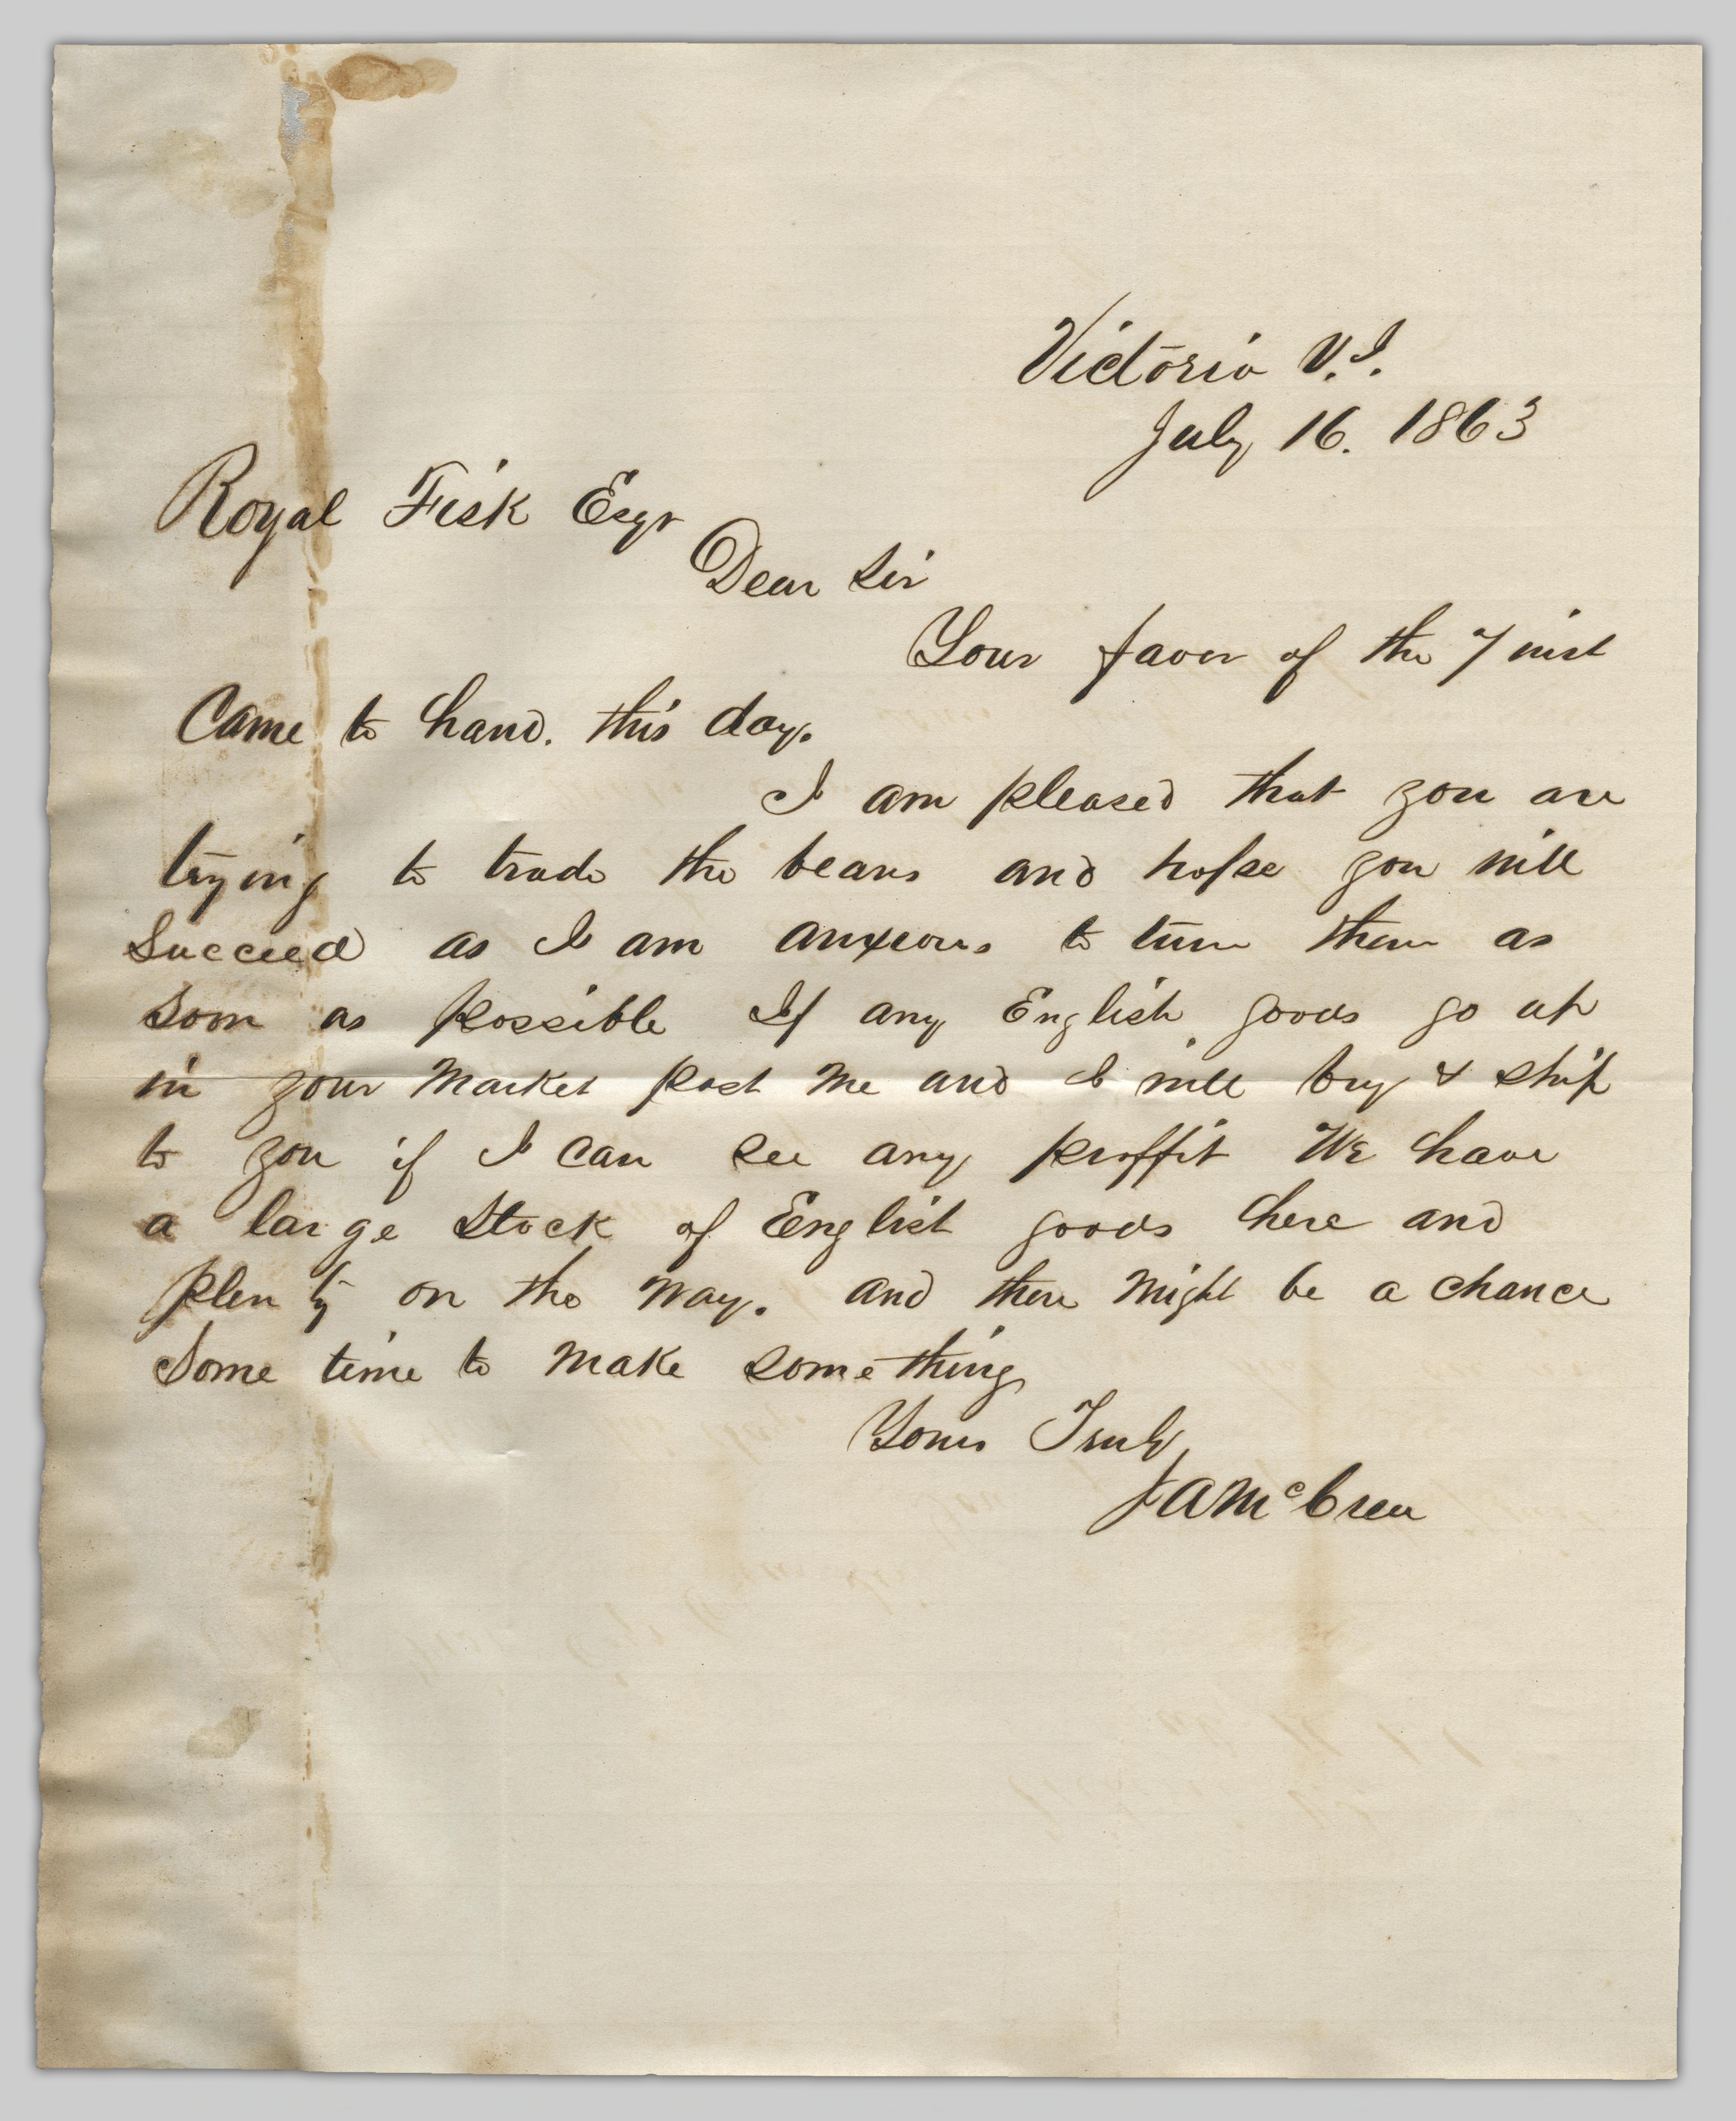 Victoria V.I.
July 16. 1863
Royal Fisk Esqr
Dear Sir
Your favor of the 7 inst
Came to hand. this day.
I am pleased that you are
trying to trade the beans and hope you will
Succeed as I am anxious to turn them as
Soon as possible If any English goods go up
in your Market post me and I will buy & ship
to you if I can see any proffit We have
a large Stock of English goods here and
plenty on the way. and there might be a chance
Some time to make something
Yours Truly,
J A McCrea